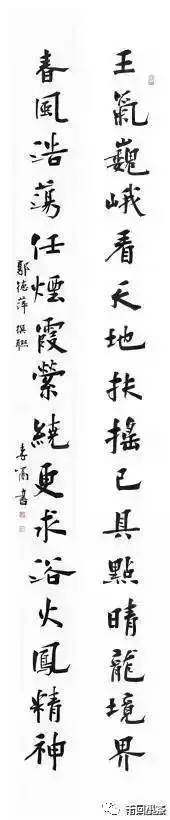 王氣巍峨看天地扶搖已具點晴龍境界
春風浩蕩任煙霞縈繞更求浴火鳳精神
鄢德萍 撰聯